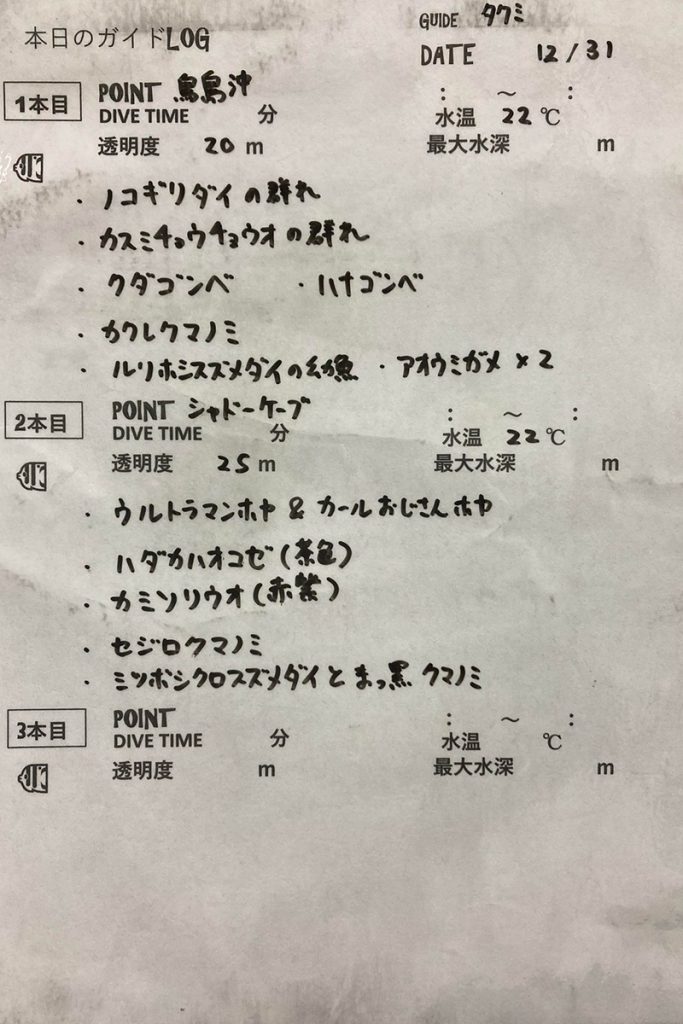 本日のガイドLOG
GUIDE タクミ
DATE 12/31
1本目 POINT 鳥島沖 : ～ :
DIVE TIME 分 水温 22 ℃
透明度 20 m 最大水深 m
・ノコギリダイの群れ
・カスミチョウチョウオの群れ
・クダゴンベ ・ハナゴンベ
・カクレクマノミ
・ルリホシスズメダイの幼魚 ・アオウミガメ×2
2本目 POINT シャドーケーブ : ～ :
DIVE TIME 分 水温 22 ℃
透明度 25 m 最大水深 m
・ウルトラマンホヤ & カールおじさんホヤ
・ハダカハオコゼ(茶色)
・カミソリウオ(赤紫)
・セジロクマノミ
・ミツボシクロスズメダイとまっ黒クマノミ
3本目 POINT : ～ :
DIVE TIME 分 水温 ℃
透明度 m 最大水深 m